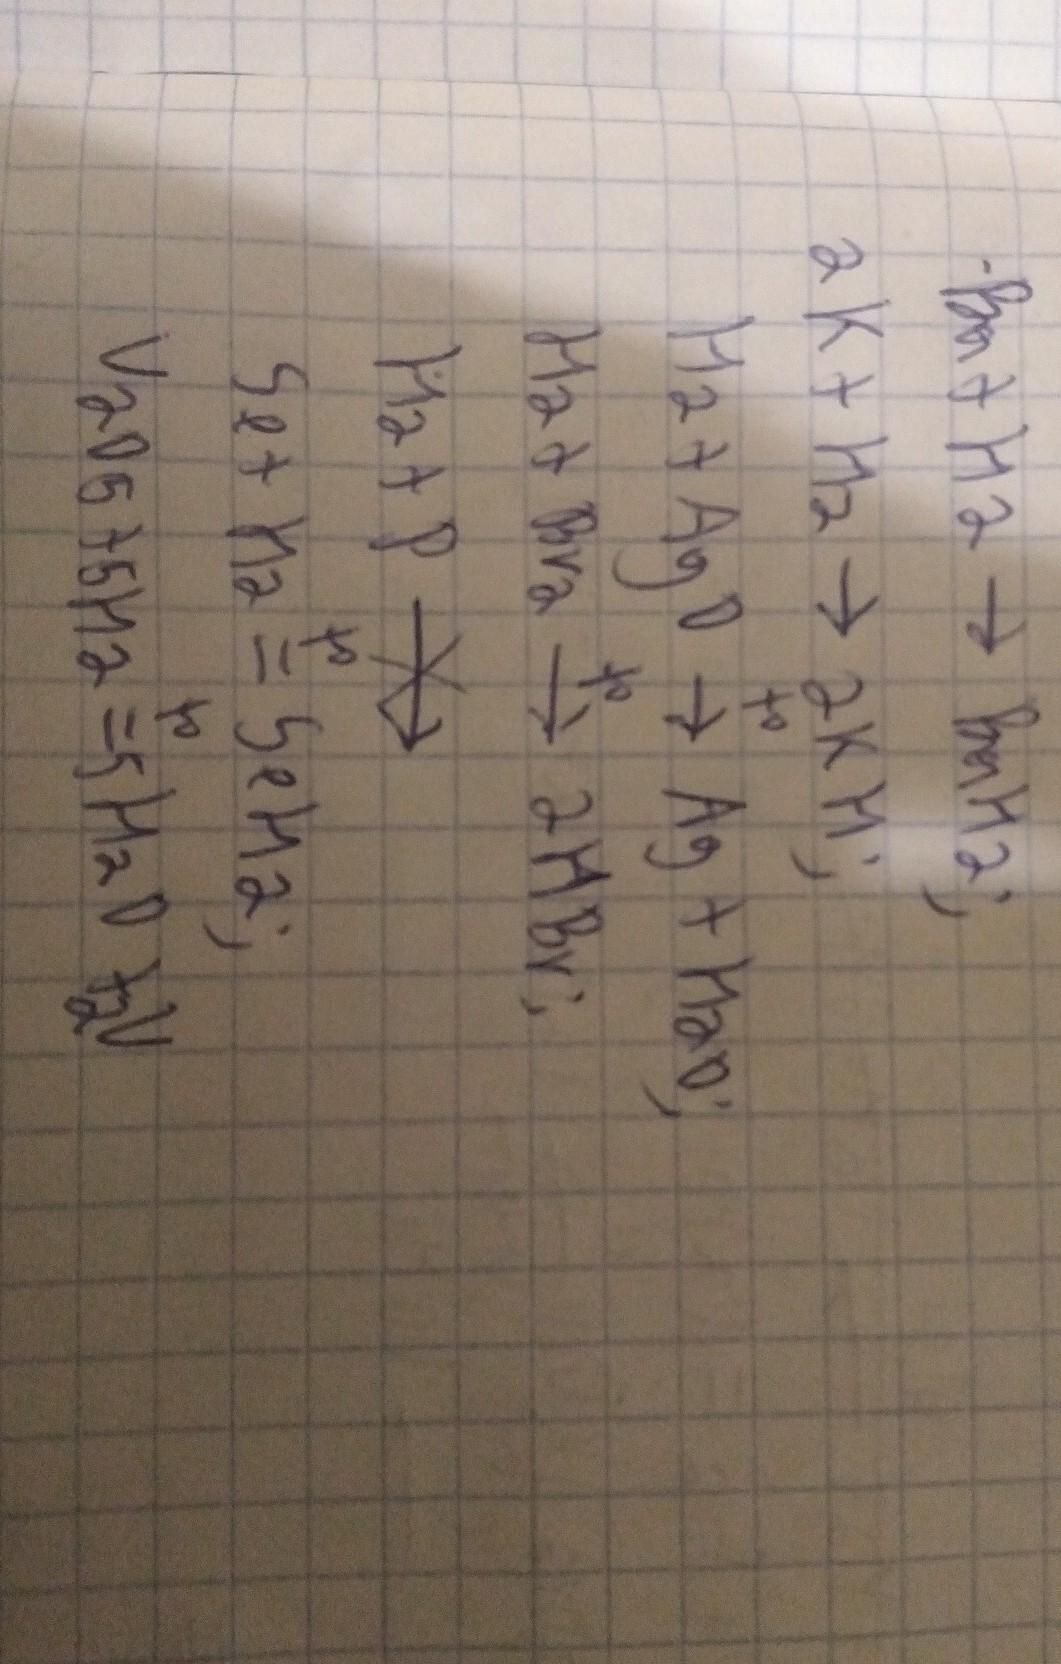 Ba + H2 → BaH2;
2K + H2 → 2KH;
H2 + AgO → t° Ag + H2O;
H2 + Br2 → t° 2HBr;
H2 + P
Se + H2 = t° SeH2;
V2O5 + 5H2 = t° 5H2O + 2V